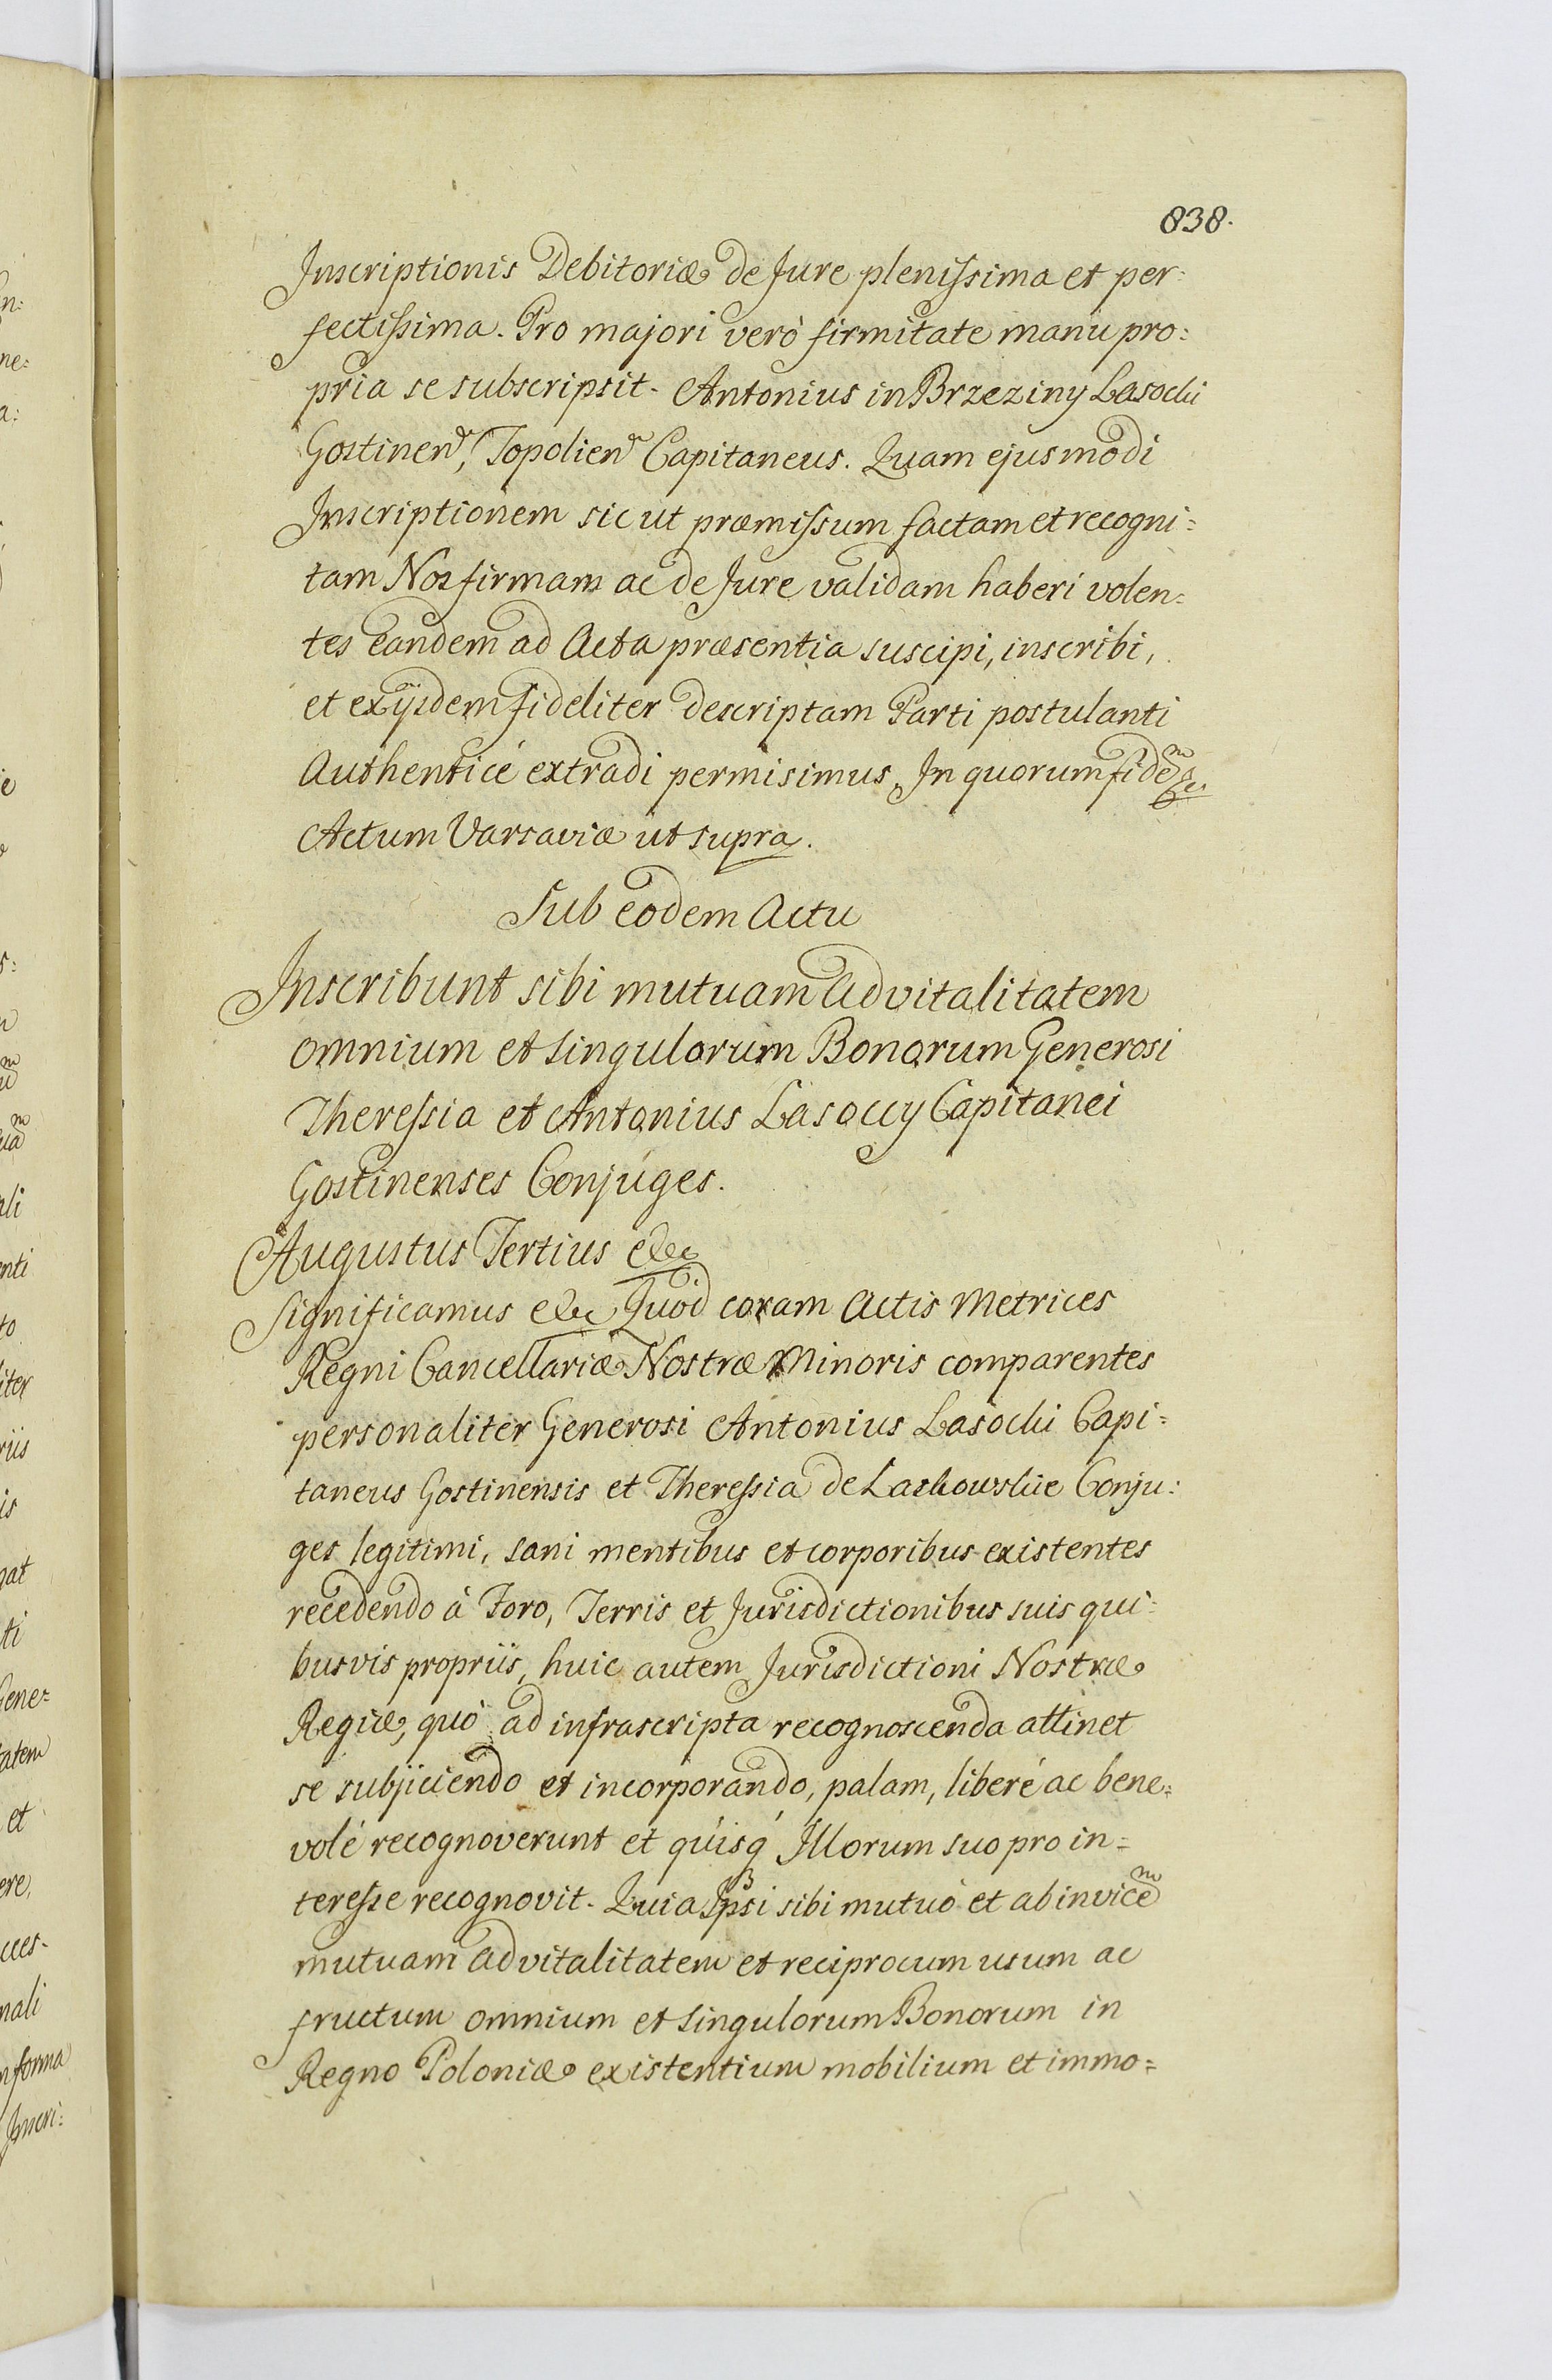 838.
Inscriptionis Debitoriæ de Jure plenissima et per:
fectissima. Pro majori verò firmitate manu pro:
pria se subscripsit. Antonius in Brzeziny Lasocki
Gostinen, Topolien Capitaneus. Quam ejusmodi
Inscriptionem sic ut præmissum factam et recogni:
tam Nos firmam ac de Jure validam haberi volen:
tes eandem ad Acta præsentia suscipi, inscribi,
et exijsdem fideliter descriptam Parti postulanti
Authenticé extradi permisimus. In quorum fidem &c.
Actum Varsaviæ ut supra.
Sub eodem Actu
Inscribunt sibi mutuam Advitalitatem
omnium et singulorum Bonorum Generosi
Theressia et Antonius Lasoccy Capitanei
Gostinenses Conjuges.
Augustus Tertius etc
Significamus etc Quod coram Actis Metrices
Regni Cancellariæ Nostræ Minoris comparentes
personaliter Generosi Antonius Lasocki Capi:
taneus Gostinensis et Theressia de Laskowskie Conju:
ges legitimi, sani mentibus et corporibus existentes
recedendo à Foro, Terris et Jurisdictionibus suis qui:
busvis propriis, huic autem Jurisdictioni Nostræ
Regiæ, quò ad infrascripta recognoscenda attinet
se subjiciendo et incorporando, palam, liberé ac bene:
volé recognoverunt et quisq Illorum suo pro in:
teresse recognovit. Quia Ipsi sibi mutuò et ab invicem
mutuam Advitalitatem et reciprocum usum ac
fructum omnium et singulorum Bonorum in
Regno Poloniæ existentium mobilium et immo: